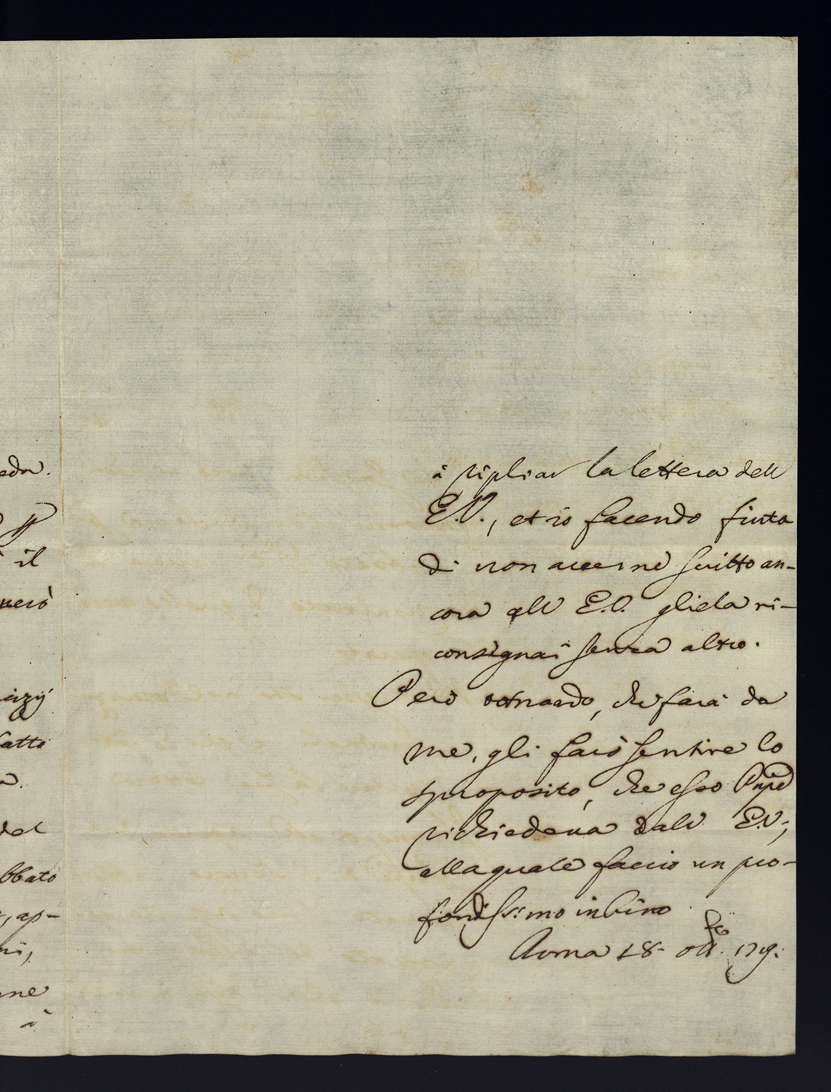 eda.
il
verò
cizij
fatto
a.
del
bbato
, ap-
ni,
ne
à
à ripliar la lettera dell
E.V., et io facendo finta
di non avernè scritto an-
cora all E.V. gliela ri-
consegnai senza altro.
Però tornando, che farà da
me, gli farò sentire lo
sproposito, che esso Pnpe
richiedeva dall E.V.,
alla quale faccio un pro-
fondissimo inchino
Roma 18. ott. 1719.